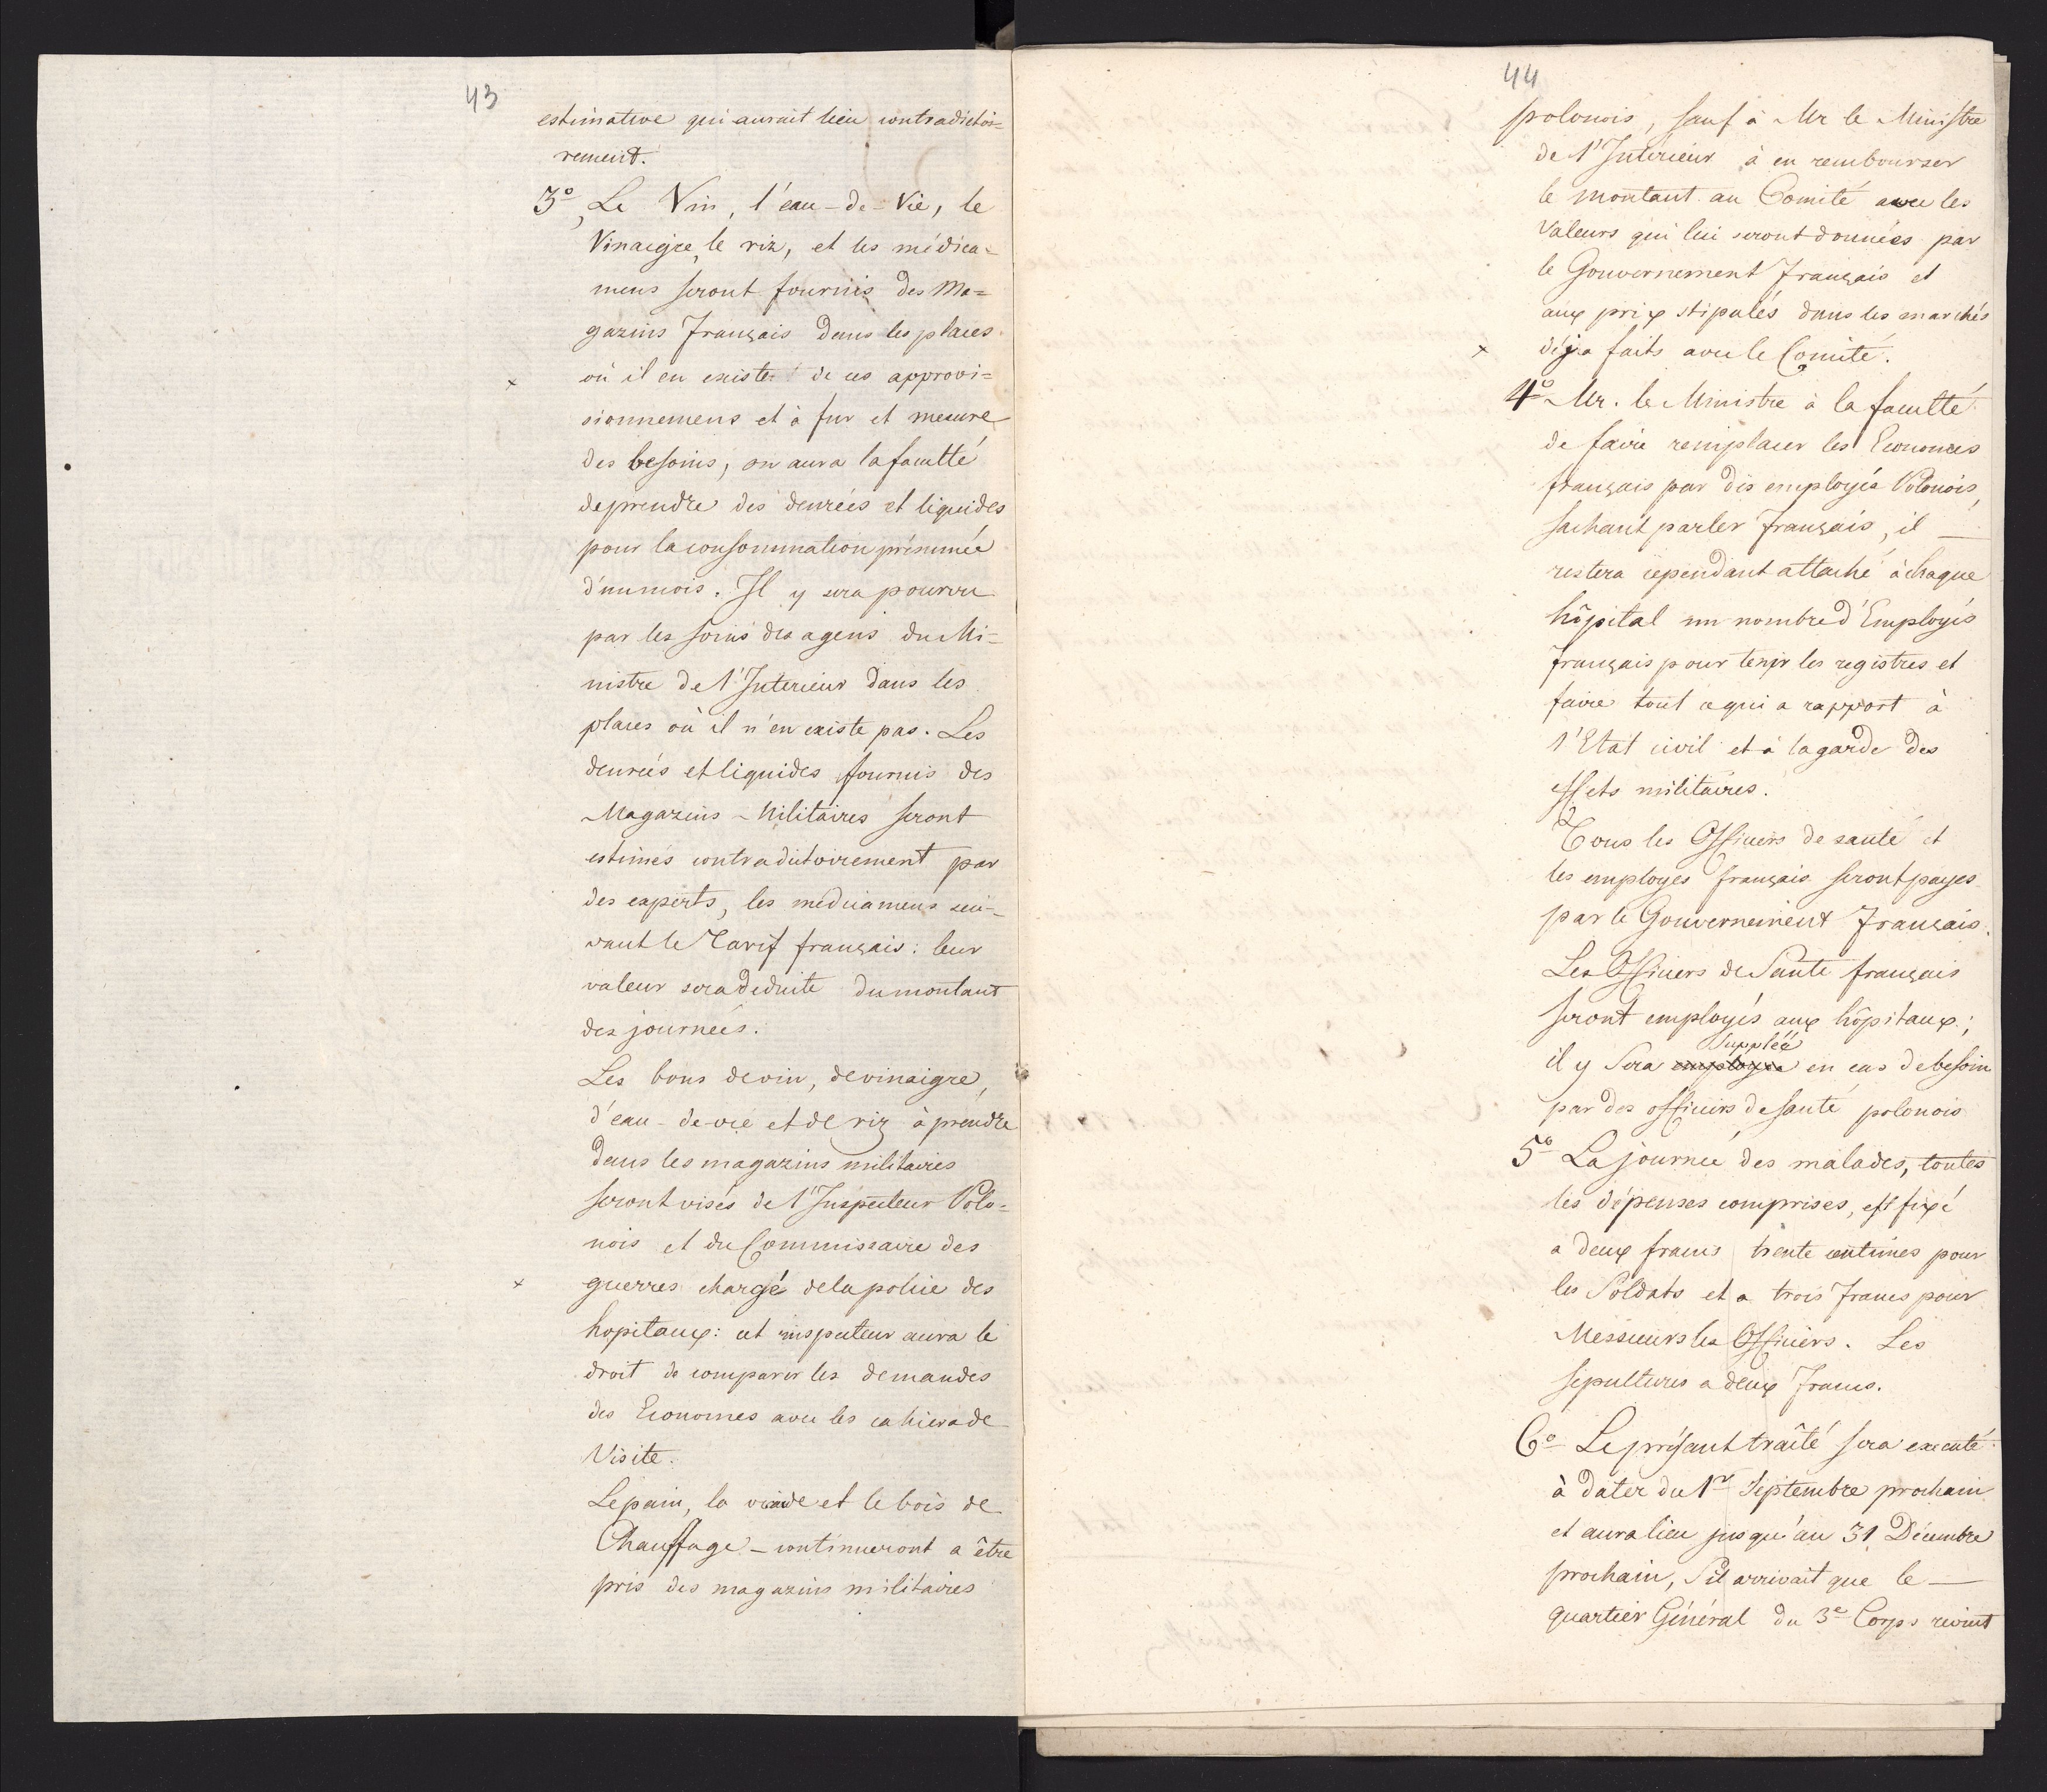 43
estimative qui aurait lieu contradictoi=
rement.
3º, Le Vin, l'eau-de-Vie, le
Vinaigre, le riz, et les médica=
mens seront fournis des Ma=
gazins Français dans les places
où il en existe: de ces approvi=
sionnemens et à fur et mesure
des besoins, on aura la faculté
de prendre des denrées et liquides
pour la consommation présumée
d'un mois. Il y sera pourvu
par les soins des agens du Mi=
nistre de l'Interieur dans les
places où il n'en existe pas. Les
denrées et liquides fournis des
Magazins-Militaires seront
estimés contradictoirement par
des experts, les médicamens sui=
vant le Tarif français: leur
valeur sera deduite du montant
des journées.
Les bons de vin, de vinaigre,
d'eau-de-vie et de riz à prendre
dans les magazins militaires
seront visés de l'Inspecteur Polo=
nois et du Commissaire des
guerres chargé de la police des
hopitaux: cet inspecteur aura le
droit de comparer les demandes
des Economes avec les cahiers de
Visite.
Le pain, la viande et le bois de
Chauffage - continueront a être
pris des magazins militaires
44
polonois, sauf à Mr le Ministre
de l'Interieur à en rembourser
le montant au Comité avec les
Valeurs qui lui seront données par
le Gouvernement Français et
aux prix stipulés dans les marchés
déja faits avec le Comité.
4º Mr. le Ministre à la faculté
de faire remplacer les Economes
français par des employés Polonois,
sachant parler Français, il —
restera cependant attaché à chaque
hôpital un nombre d'Employés
français pour tenir les registres et
faire tout ce qui a rapport à
l'Etat civil et à la garde des
effets militaires.
Tous les Officiers de santé et
les employes français seront payes
par le Gouvernement Français.
Les Officiers de Santé français
seront employés aux hôpitaux;
Suppléé
il y sera employés en cas de besoin
par des officiers de santé polonois
5º La journée des malades, toutes
les dépenses comprises, est fixé
a deux francs trente centimes pour
les Soldats et a trois francs pour
Messieurs les Officiers. Les
sepultures a deux francs.
6º Le présant traîté sera executé
à dater du 1er Septembre prochain
et aura lieu jusqu'au 31 Décembre
prochain, S'il arrivait que le —
quartier Général du 3e Corps revint